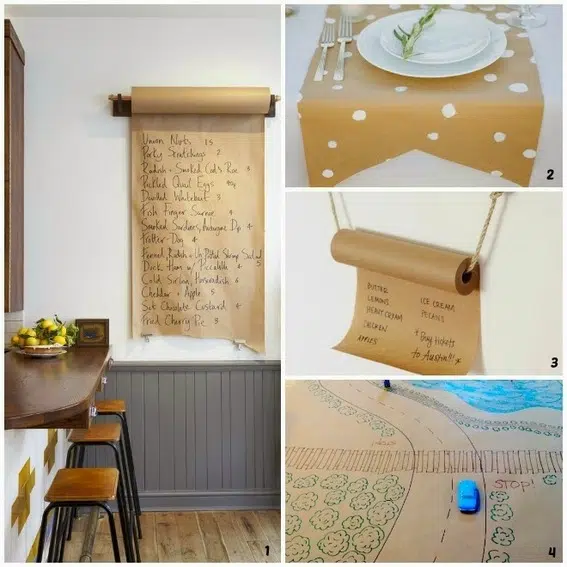 Union Nibs 1.5
Porky Scratchings 2
Radish + Smoked Cod's Roe 4
Pickled Quail Eggs
Devilled Whitebait 3
Fish Finger Sarnie 4
Smoked Sardines, Aubergine Dip 4
Trotter Dog 4
Fennel, Radish +
Potted Shrimp Salad 5
Duck Ham w/ Piccalilli 4
Cold Sirloin, Horseradish 6
Cheddar + Apple 5
Set Chocolate Custard 4
Fried Cherry Pie 3
1
2
BUTTER
LEMONS
HEAVY CREAM
CHICKEN
APPLES
ICE CREAM
PECANS
* Buy tickets
to Austral!! *
3
STOP!
4